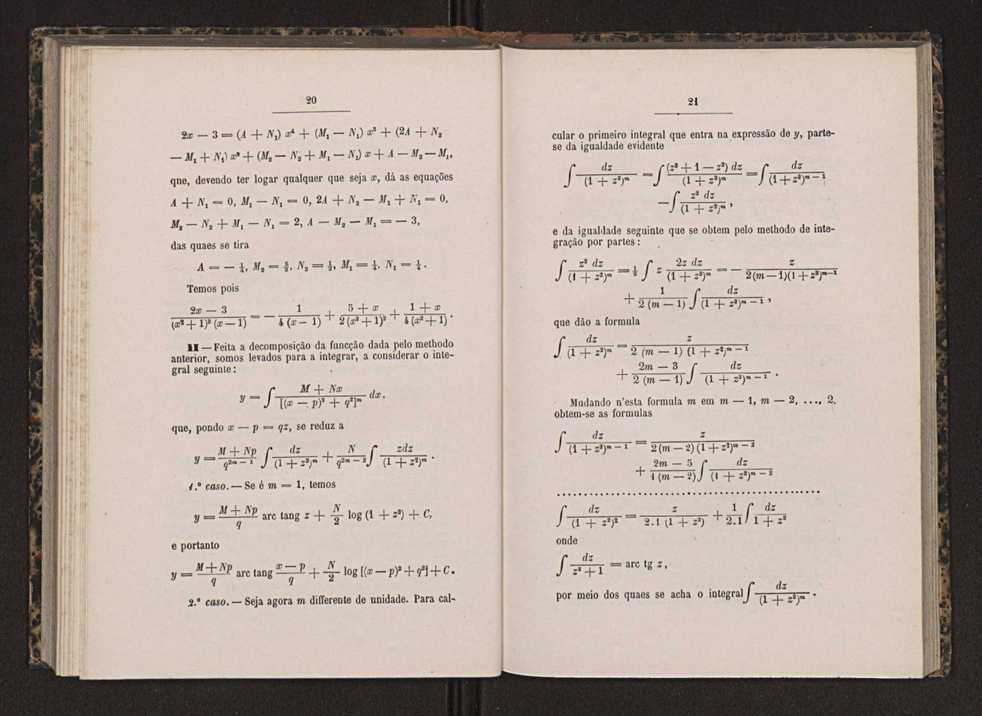 20
2x — 3 = (A + N₁) x⁴ + (M₁ — N₁) x³ + (2A + N₂
— M₁ + N₁) x² + (M₂ — N₂ + M₁ — N₁) x + A — M₂ — M₁,
que, devendo ter logar qualquer que seja x, dá as equações
A + N₁ = 0, M₁ — N₁ = 0, 2A + N₂ — M₁ + N₁ = 0,
M₂ — N₂ + M₁ — N₁ = 2, A — M₂ — M₁ = — 3,
das quaes se tira
A = — ¼, M₂ = 5/2, N₂ = ½, M₁ = ¼, N₁ = ¼.
Temos pois
(2x — 3)/((x² + 1)² (x — 1)) = — 1/(4 (x — 1)) + (5 + x)/(2 (x² + 1)²) + (1 + x)/(4 (x² + 1)).
II — Feita a decomposição da funcção dada pelo methodo
anterior, somos levados para a integrar, a considerar o inte-
gral seguinte:
y = ∫ (M + Nx)/([(x — p)² + q²]ᵐ) dx.
que, pondo x — p = qz, se reduz a
y = (M + Np)/(q²ᵐ⁻¹) ∫ dz/((1 + z²)ᵐ) + N/(q²ᵐ⁻²) ∫ zdz/((1 + z²)ᵐ).
1.º caso. — Se é m = 1, temos
y = (M + Np)/q arc tang z + N/2 log (1 + z²) + C,
e portanto
y = (M + Np)/q arc tang (x — p)/q + N/2 log [(x — p)² + q²] + C.
2.º caso. — Seja agora m differente de unidade. Para cal-
21
cular o primeiro integral que entra na expressão de y, parte-
se da igualdade evidente
∫ dz/((1 + z²)ᵐ) = ∫ ((z² + 1 — z²) dz)/((1 + z²)ᵐ) = ∫ dz/((1 + z²)ᵐ⁻¹)
— ∫ z² dz/((1 + z²)ᵐ),
e da igualdade seguinte que se obtem pelo methodo de inte-
gração por partes:
∫ z² dz/((1 + z²)ᵐ) = ½ ∫ z 2z dz/((1 + z²)ᵐ) = — z/(2(m — 1)(1 + z²)ᵐ⁻¹)
+ 1/(2 (m — 1)) ∫ dz/((1 + z²)ᵐ⁻¹),
que dão a formula
∫ dz/((1 + z²)ᵐ) = z/(2 (m — 1) (1 + z²)ᵐ⁻¹)
+ (2m — 3)/(2 (m — 1)) ∫ dz/((1 + z²)ᵐ⁻¹).
Mudando n'esta formula m em m — 1, m — 2, ..., 2,
obtem-se as formulas
∫ dz/((1 + z²)ᵐ⁻¹) = z/(2 (m — 2) (1 + z²)ᵐ⁻²)
+ (2m — 5)/(4 (m — 2)) ∫ dz/((1 + z²)ᵐ⁻²)
. . . . . . . . . . . . . . . . . . . . . . . . . . . . . .
∫ dz/((1 + z²)²) = z/(2.1 (1 + z²)) + 1/2.1 ∫ dz/(1 + z²)
onde
∫ dz/(z² + 1) = arc tg z,
por meio dos quaes se acha o integral ∫ dz/((1 + z²)ᵐ).